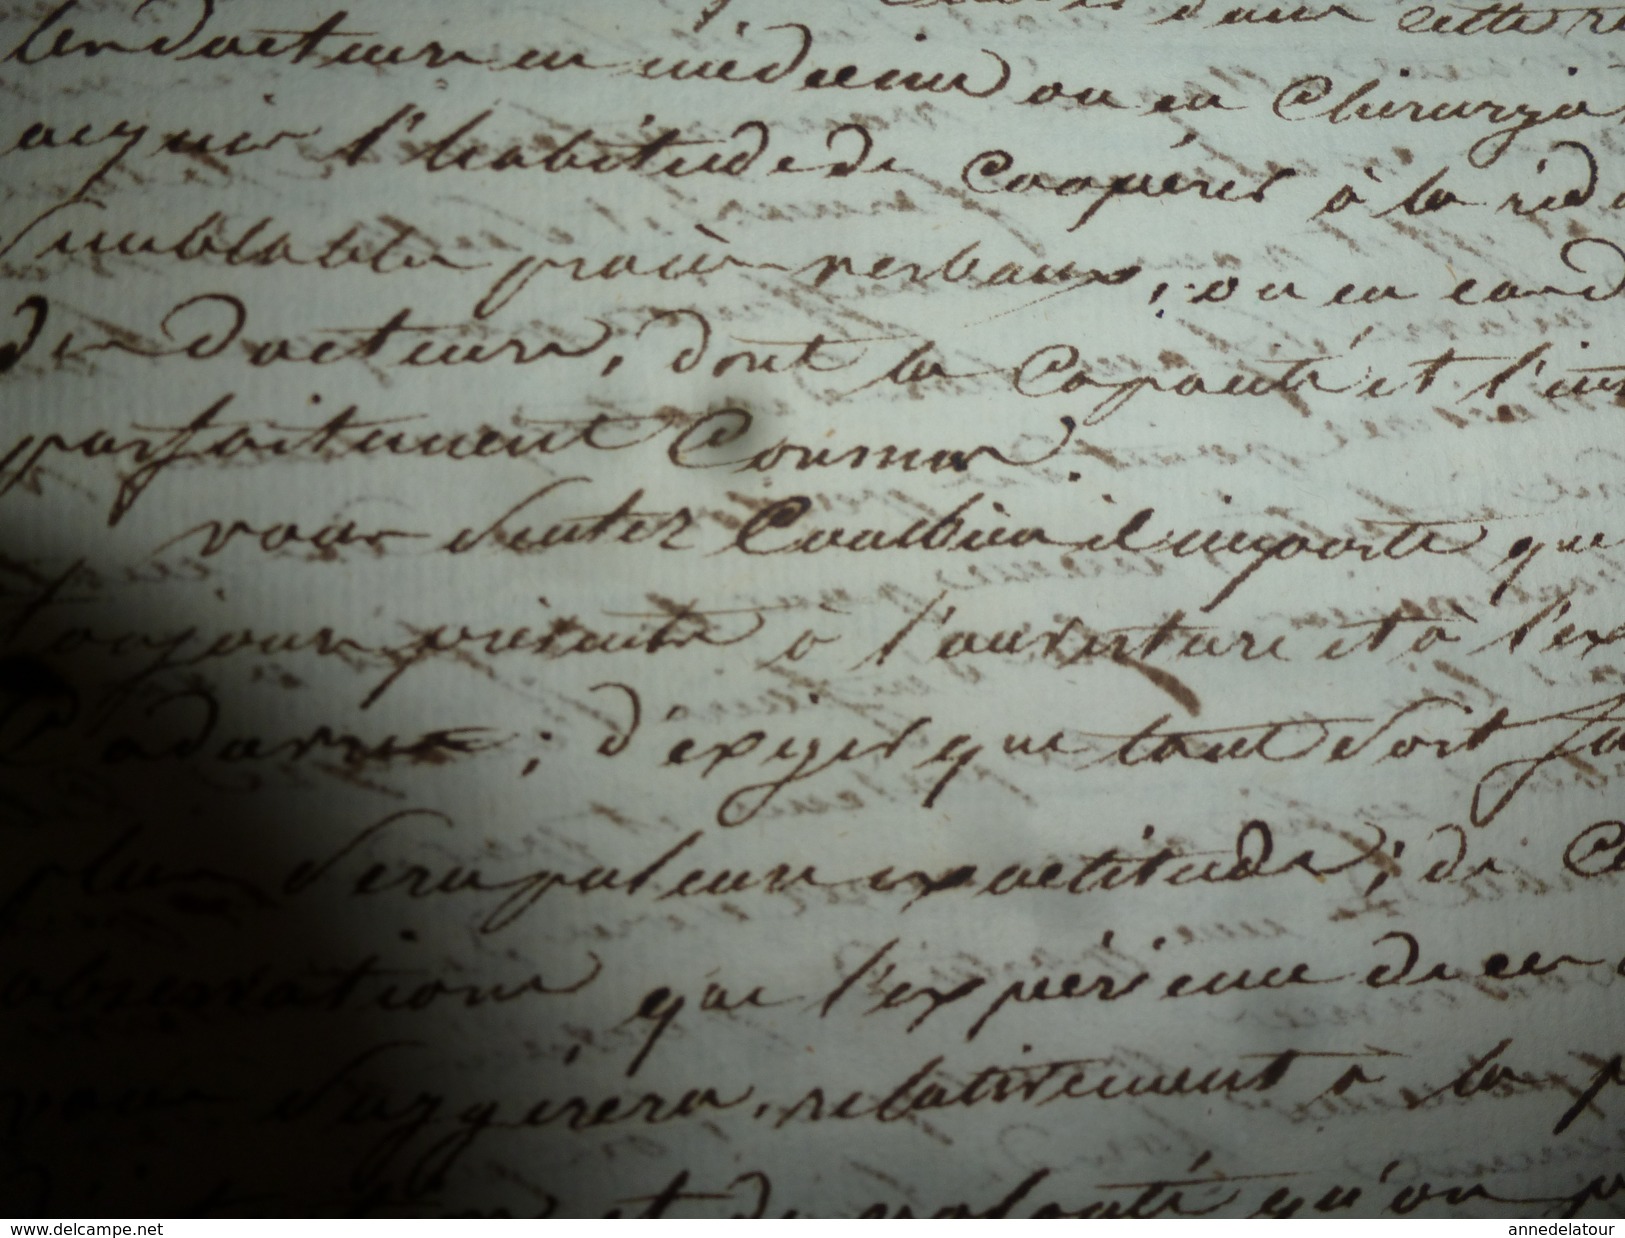 dans cette
les docteurs en médecine ou en Chirurgie
acquis l'habitude de Coopérer à la réd
Semblables procès verbaux, ou en cond
des docteurs, dont la Capacité et l'int
parfaitement Connus.
vous Sentez Combien il importe que
toujours présents à l'ouverture et à l'ex
Cadavres; d'exiger que tout Soit fa
plus Scrupuleuse exactitude; de Ce
observations que l'expérience de ces
vous Suggérera, relativement à la p
et de qu'on p
www.delcampe.net
annedelatour